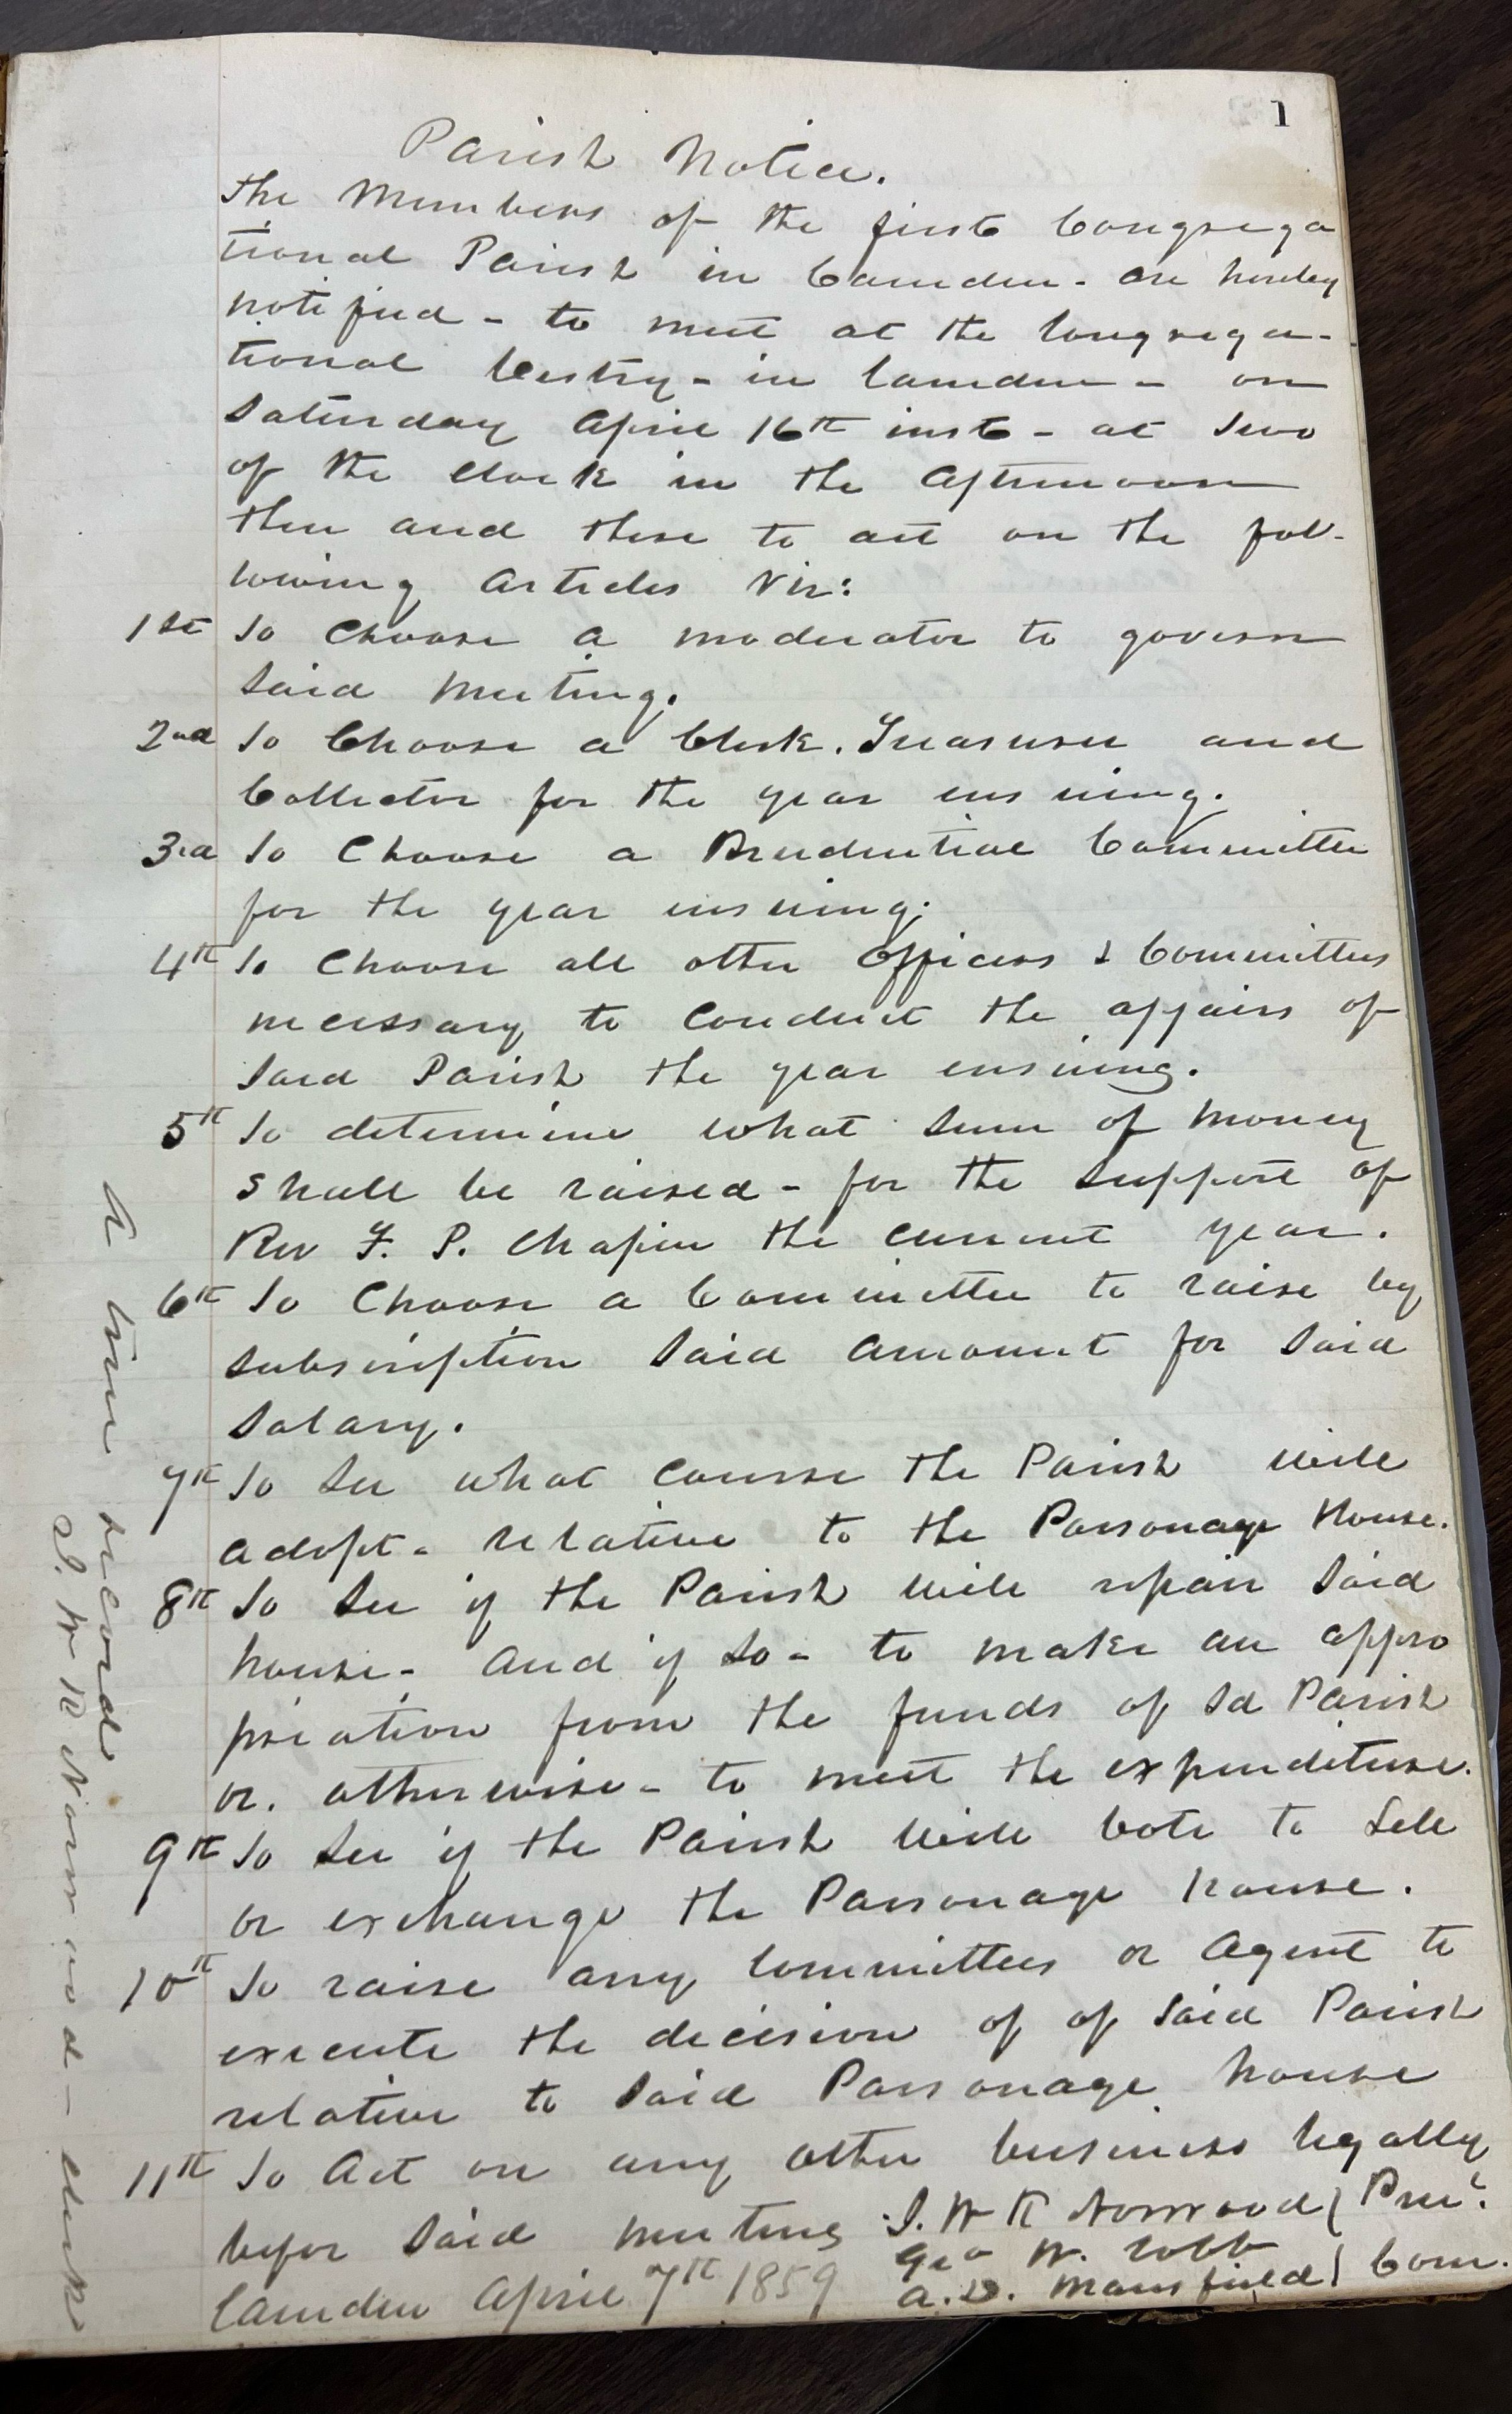 1
Parish Notice.
The Members of the first Congrega
tional Parish in Camden - are hereby
notified - to meet at the Congrega-
tional Vestry - in Camden - on
Saturday April 16th inst - at two
of the clock in the afternoon
then and there to act on the fol-
lowing articles Viz:
1st To Choose a moderator to govern
Said Meeting.
2nd To Choose a Clerk. Treasurer and
Collector for the year ensuing.
3rd To Choose a Prudential Committee
for the year ensuing.
4th To Choose all other Officers & Committees
necessary to Conduct the affairs of
Said Parish the year ensuing.
5th To determine what Sum of Money
Shall be raised - for the Support of
Rev F. P. Chapin the Current year.
6th To Choose a Committee to raise by
Subscription Said Amount for Said
Salary.
7th To See what Course the Parish will
adopt - relative to the Parsonage House.
8th To See if the Parish will repair Said
house - And if So - to make an appro
priation from the funds of Sd Parish
or. otherwise - to meet the expenditure.
9th To See if the Parish will Vote to Sell
or exchange the Parsonage house.
10th To raise any Committees or Agent to
execute the decision of of Said Parish
relative to Said Parsonage house
11th To Act on any other business legally
before Said meeting
Camden April 7th 1859
J. W K Norwood } Pru.
Geo W. Cobb
A. D. Mansfield } Com.
A true record
J. W K Norwood - Clerk